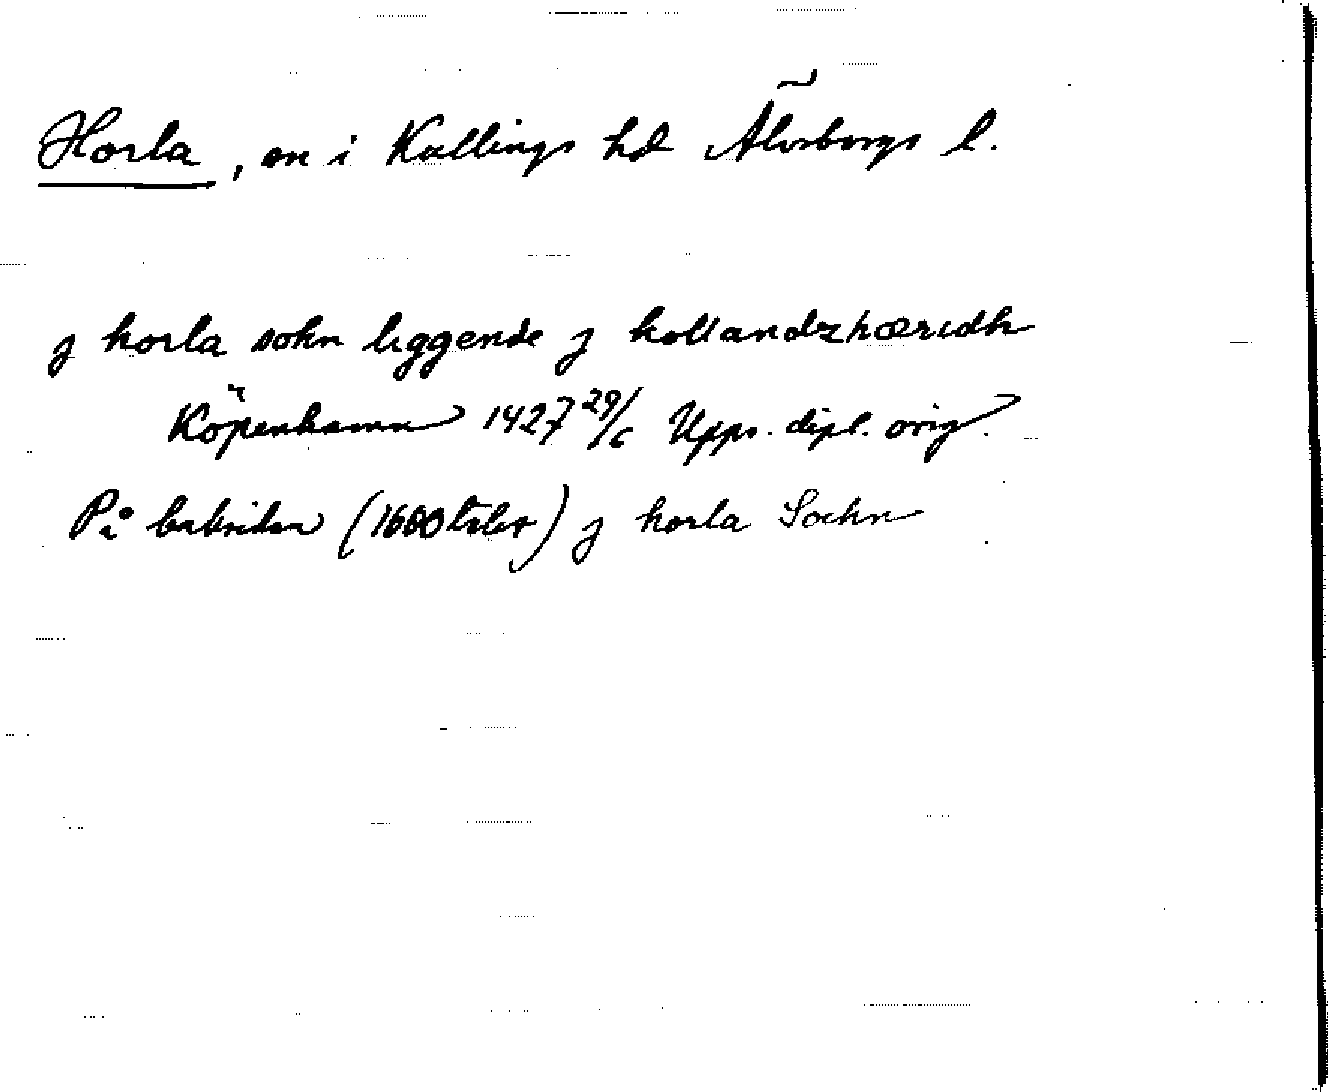 Horla, sn i Kullings hd Älvsborgs l.
j horla sokn liggende j kollandzhæridh
Köpenhamn 1427 29/6 Upps. dipl. orig.
På baksidan (1600talet) j horla Sochn